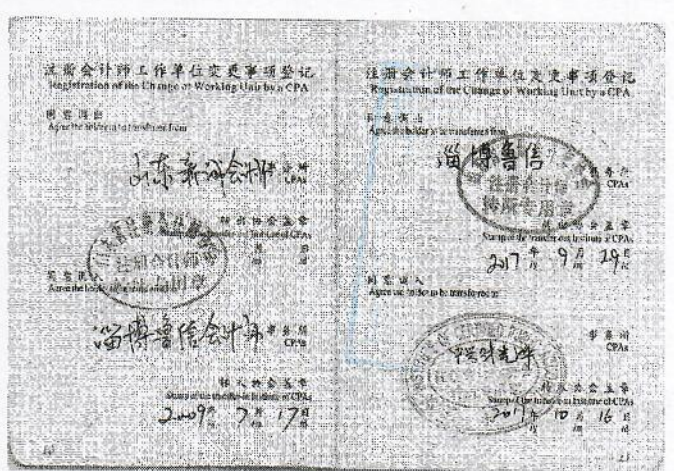 注册会计师工作单位变更事项登记
Registration of the Change of Working Unit by a CPA
同意调出
Agree the holder to be transferred from
山东新诚会计师事务所
CPAs
转出协会盖章
Stamp of the transfer-out Institute of CPAs
年 月 日
注册会计师
同意调入
Agree the holder to be transferred to
淄博鲁信会计师事务所
CPAs
转入协会盖章
Stamp of the transfer-in Institute of CPAs
2009年 7月 17日
20
注册会计师工作单位变更事项登记
Registration of the Change of Working Unit by a CPA
同意调出
Agree the holder to be transferred from
淄博鲁信
事务所
CPAs
注册会计师
转所专用章
转出协会盖章
Stamp of the transfer-out Institute of CPAs
2017年 9月 29日
同意调入
Agree the holder to be transferred to
事务所
CPAs
转入协会盖章
Stamp of the transfer-in Institute of CPAs
2017年 10月 16日
21